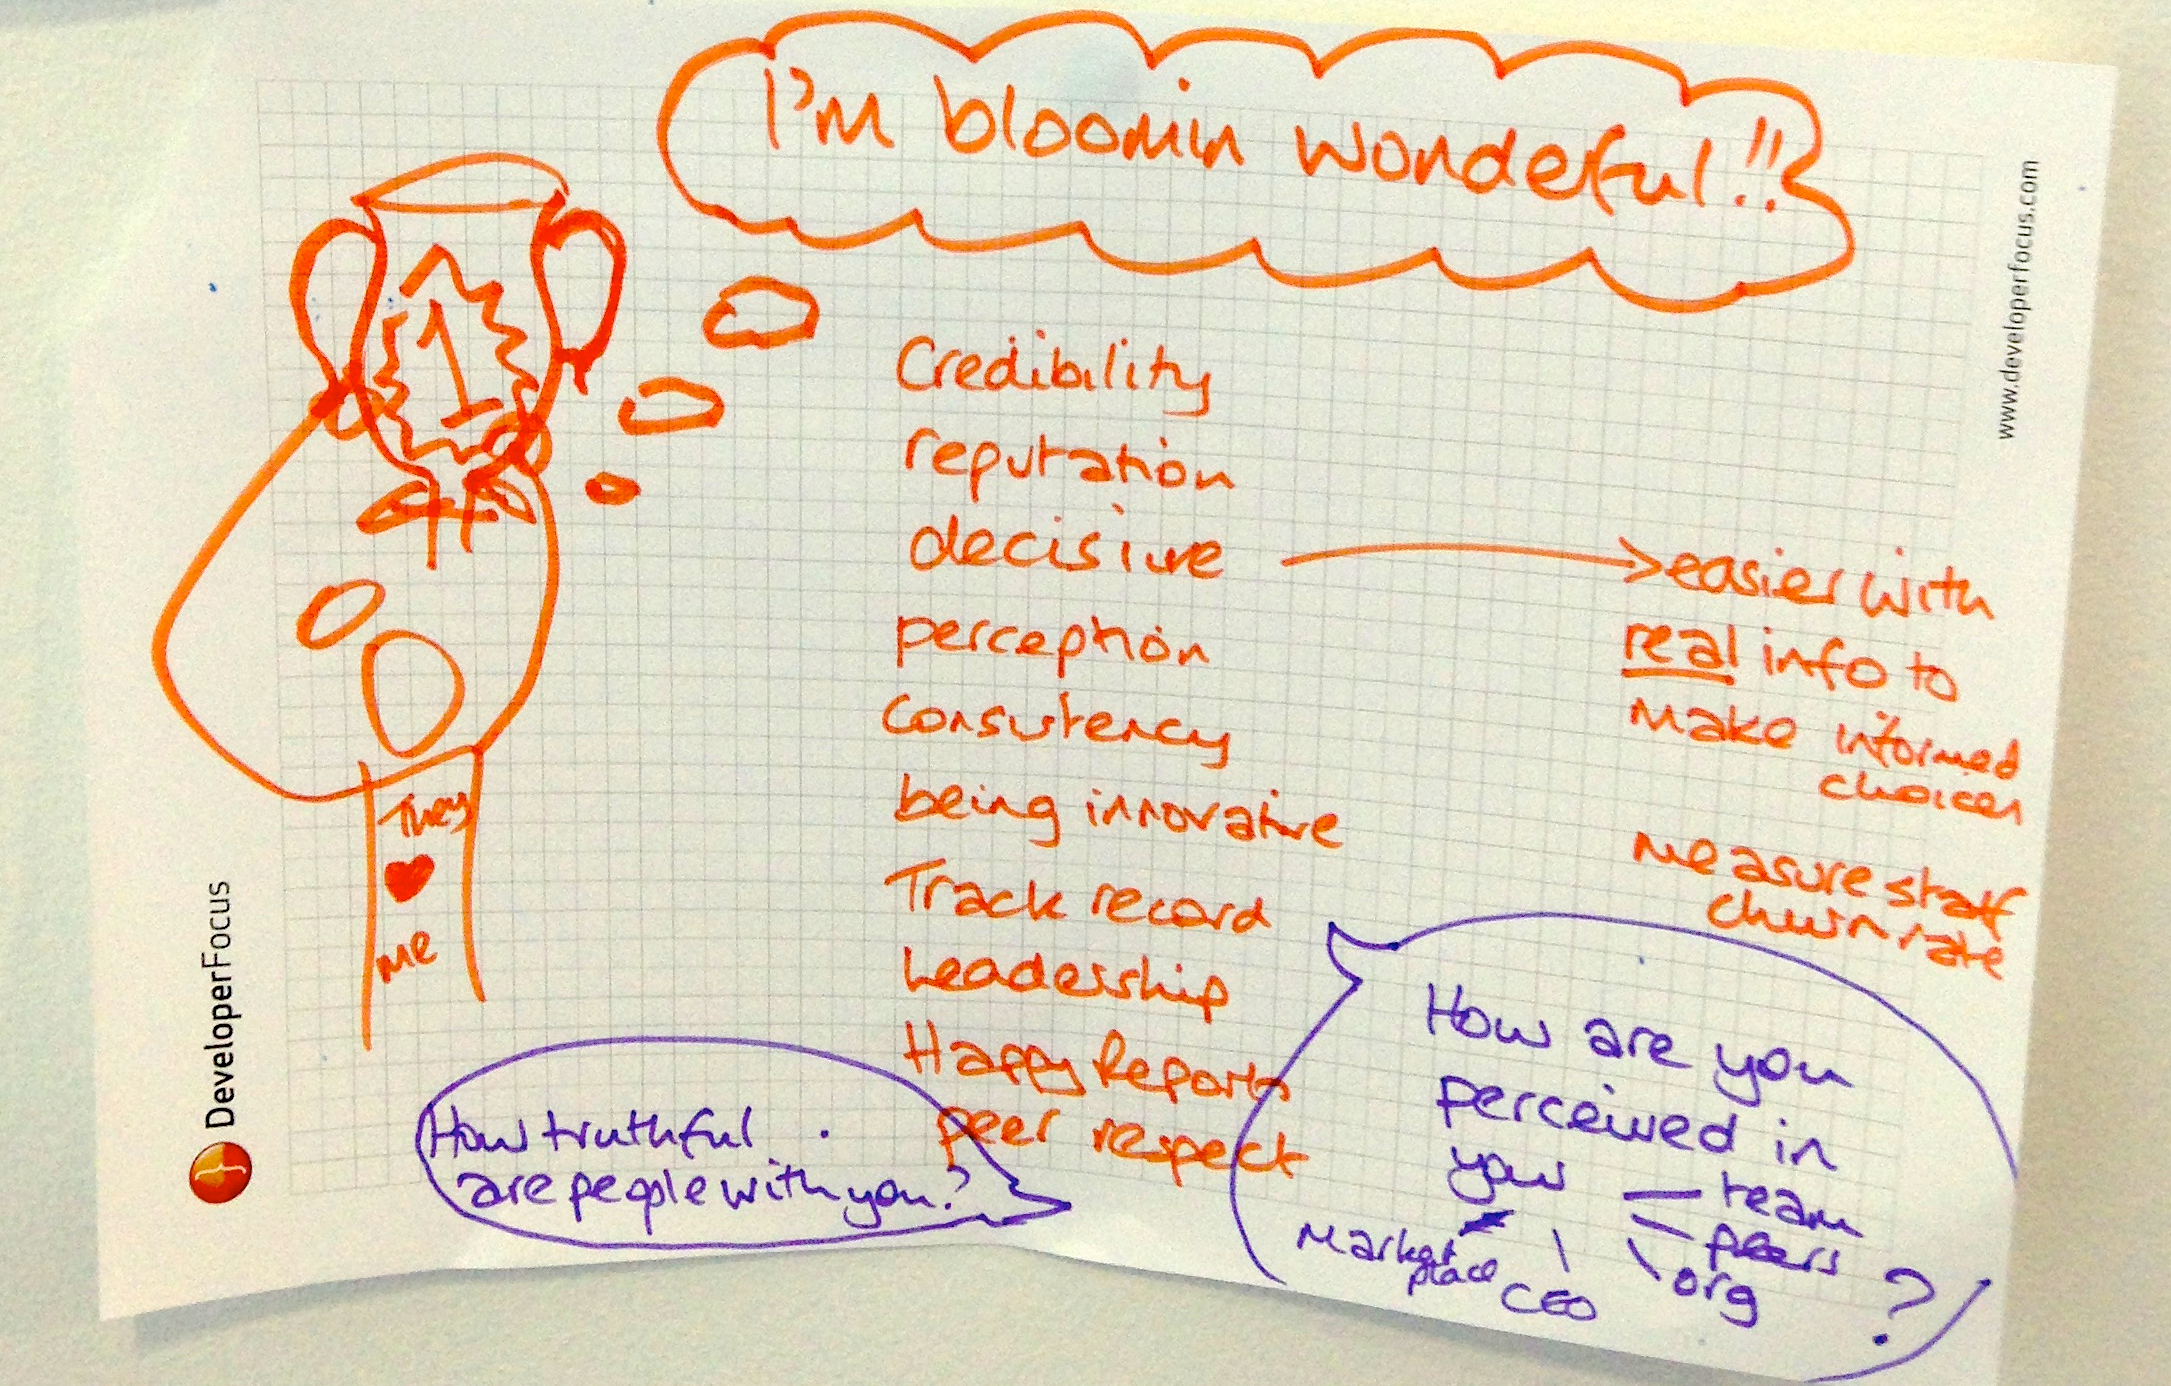 I'm bloomin wonderful!!
www.developerfocus.com
1
Credibility
reputation
decisive
perception
Consistency
being innovative
Track record
Leadership
Happy Reports
peer respect
easier with
real info to
make informed
choices
measure staff
churn rate
They
♥
me
How truthful
are people with you?
How are you
perceived in
your
team
peers
org
CEO
Market
place
?
DeveloperFocus